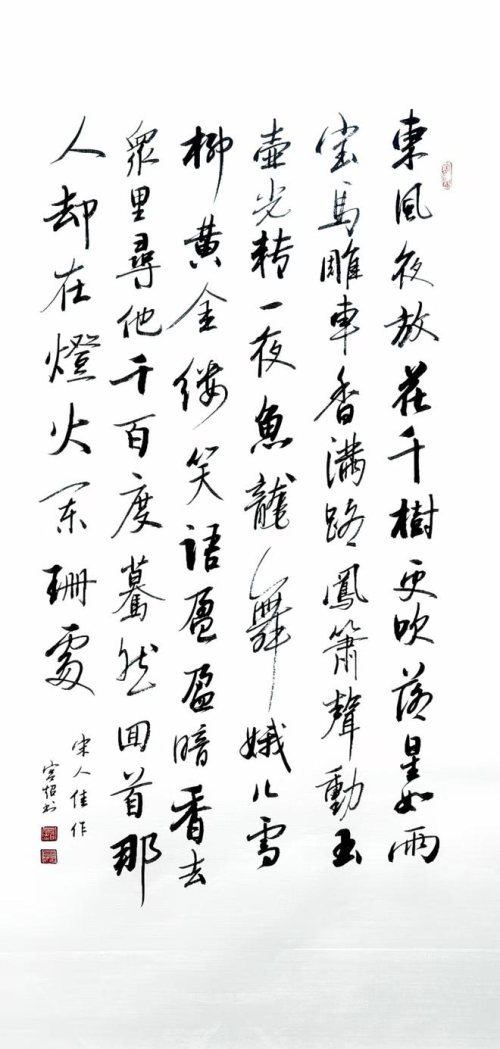 東風夜放花千樹更吹落星如雨
宝馬雕車香滿路鳳簫聲動玉
壺光轉一夜魚龍舞娥儿雪
柳黄金缕笑語盈盈暗香去
眾里尋他千百度驀然回首那
人却在燈火阑珊處
宋人佳作
书